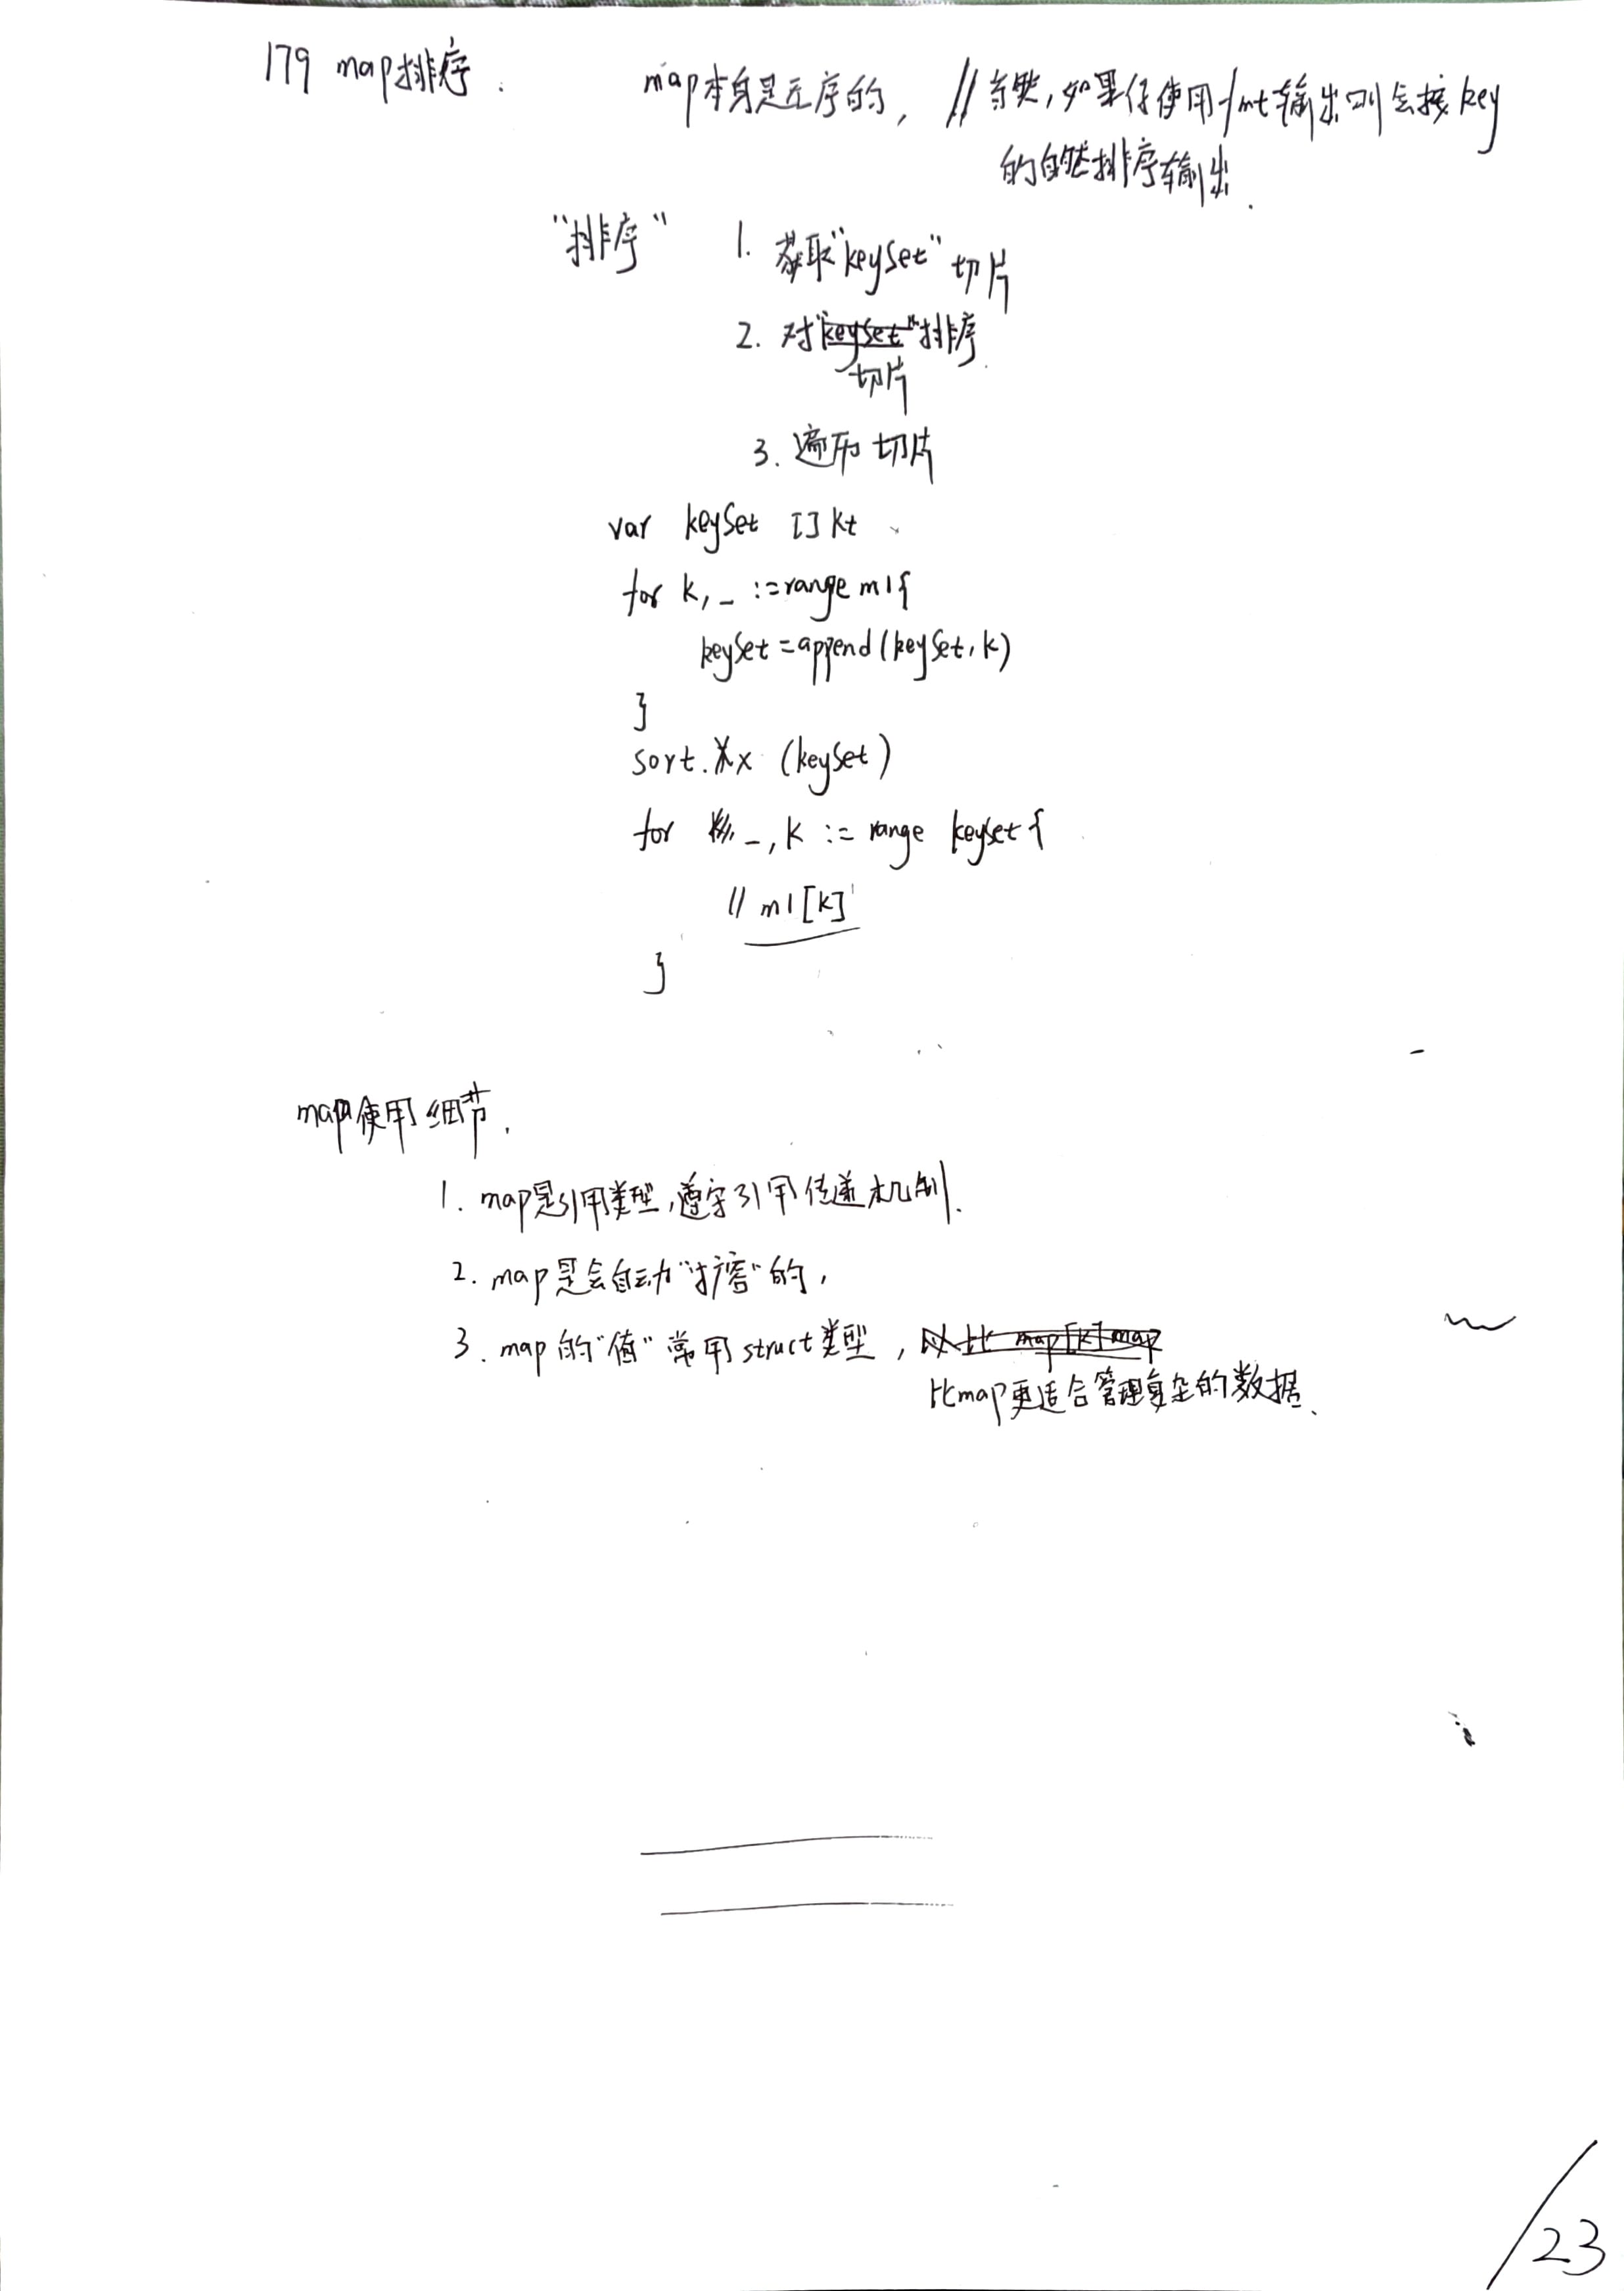 179 map排序.
map本身是无序的, //当然,如果仅使用fmt输出则会按key
的自然排序输出.
"排序" 1. 获取"keySet"切片
2. 对"keySet"排序.
切片
3. 遍历切片
var keySet []kt
for k, _ := range m1{
keySet = append(keySet, k)
}
sort.xx (keySet)
for _, k := range keySet{
// m1[k]
}
map使用细节.
1. map是引用类型,遵守引用传递机制.
2. map是会自动"扩容"的,
3. map的"值"常用struct类型, 以比 map[k]map
比map更适合管理复杂的数据.
/23